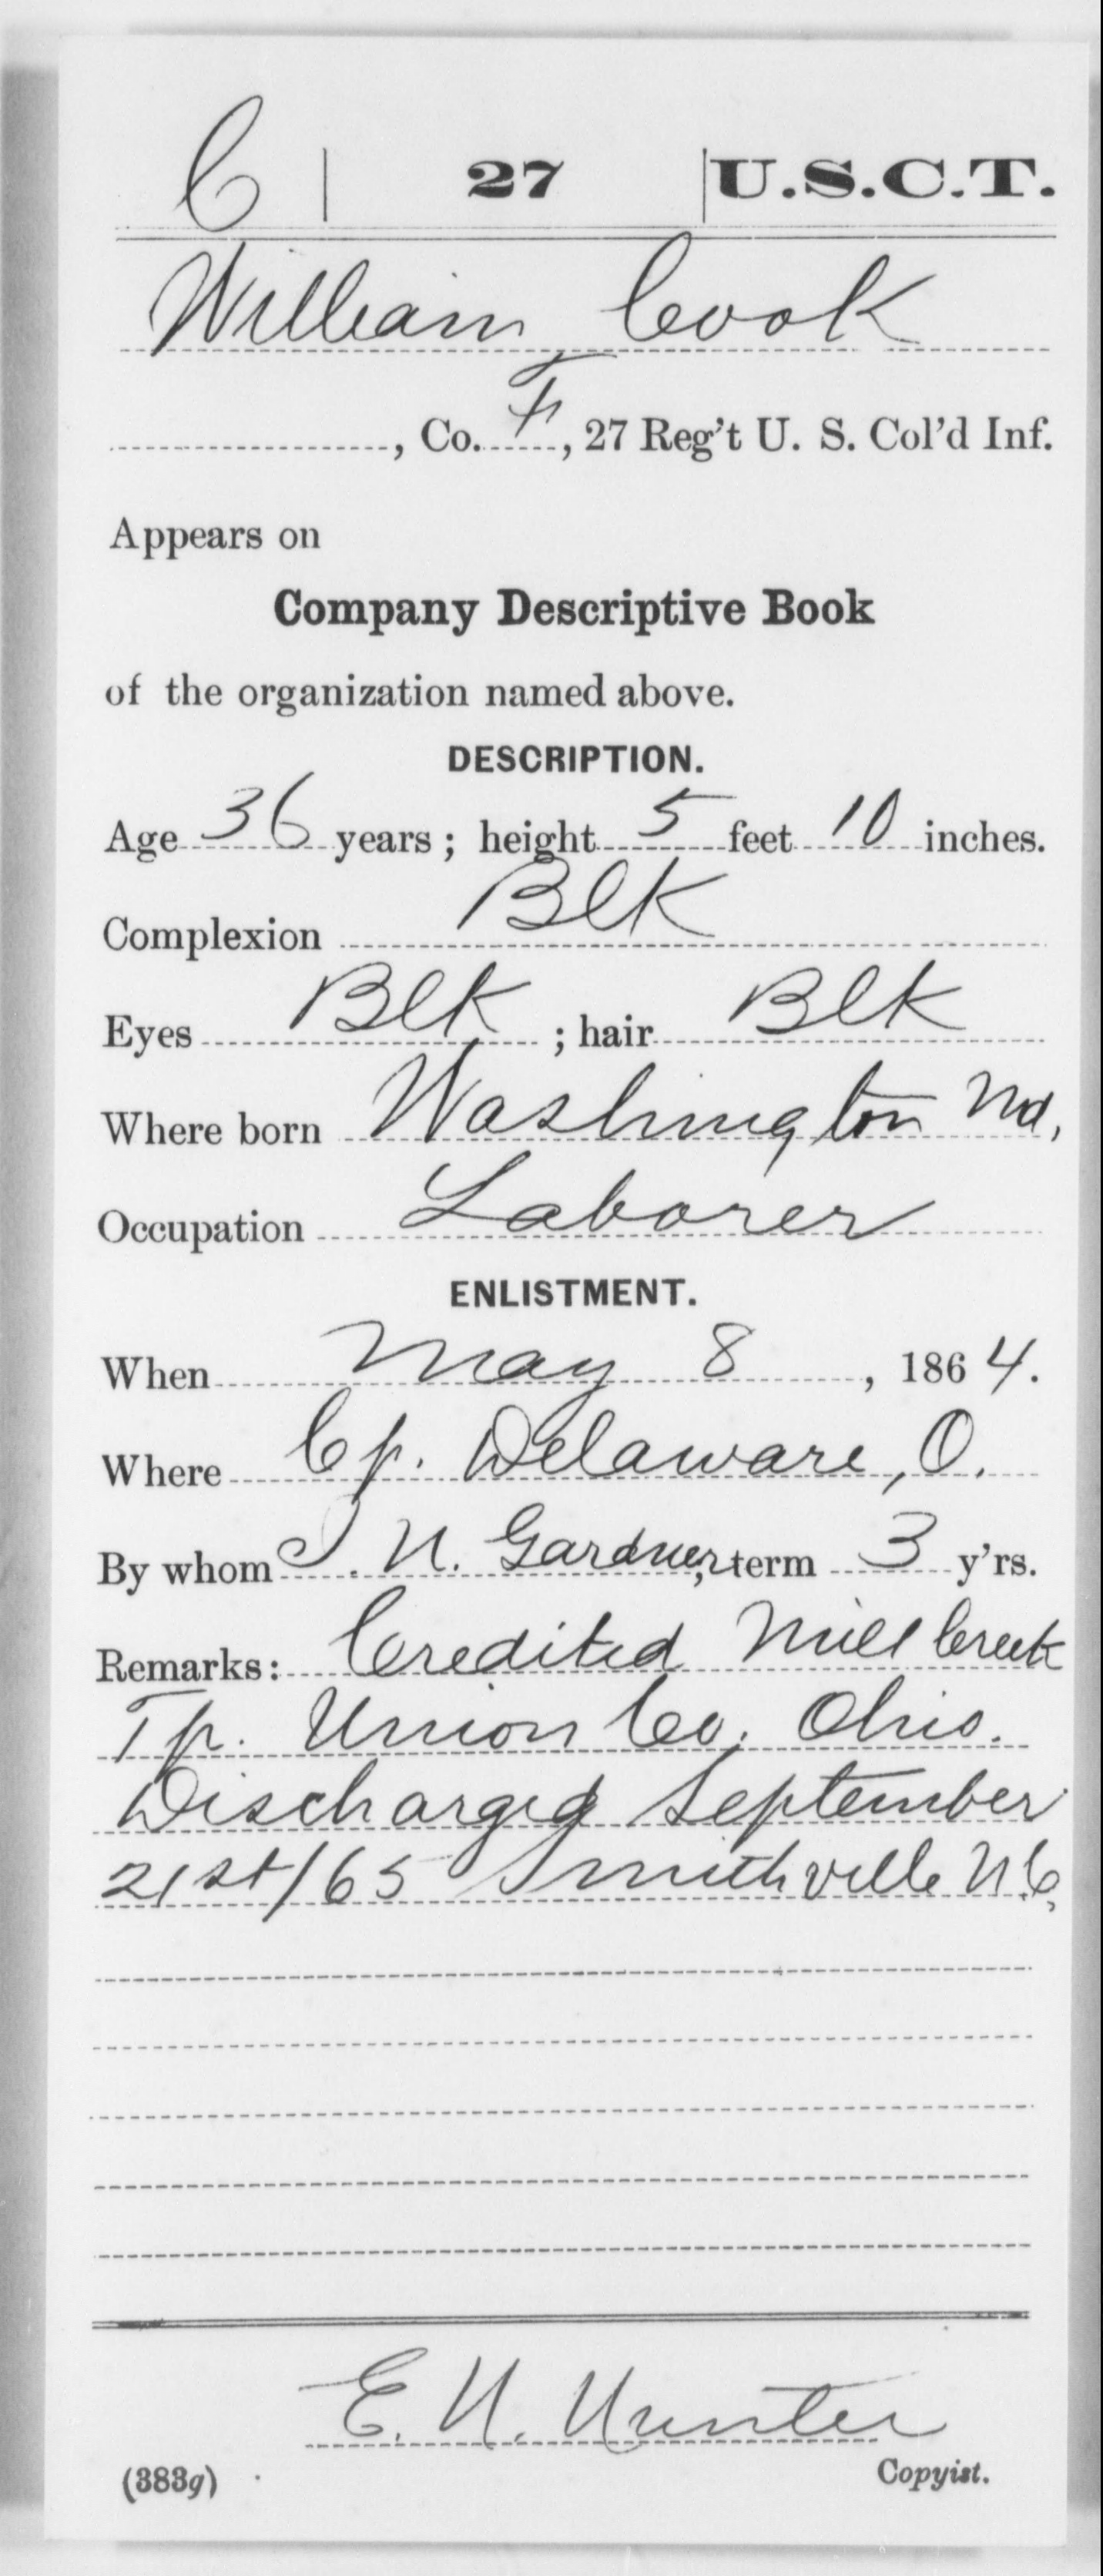 C | 27 | U.S.C.T.
William Cook
, Co. F, 27 Reg't U. S. Col'd Inf.
Appears on
Company Descriptive Book
of the organization named above.
DESCRIPTION.
Age 36 years; height 5 feet 10 inches.
Complexion Blk
Eyes Blk; hair Blk
Where born Washington Md,
Occupation Laborer
ENLISTMENT.
When May 8, 1864.
Where Cp. Delaware, O.
By whom N. Gardner, term 3 y'rs.
Remarks: Credited Mill Creek
Tp. Union Co. Ohio.
Discharged September
21st/65 Smithville N.C,
E. N. Hunter
(383g) Copyist.